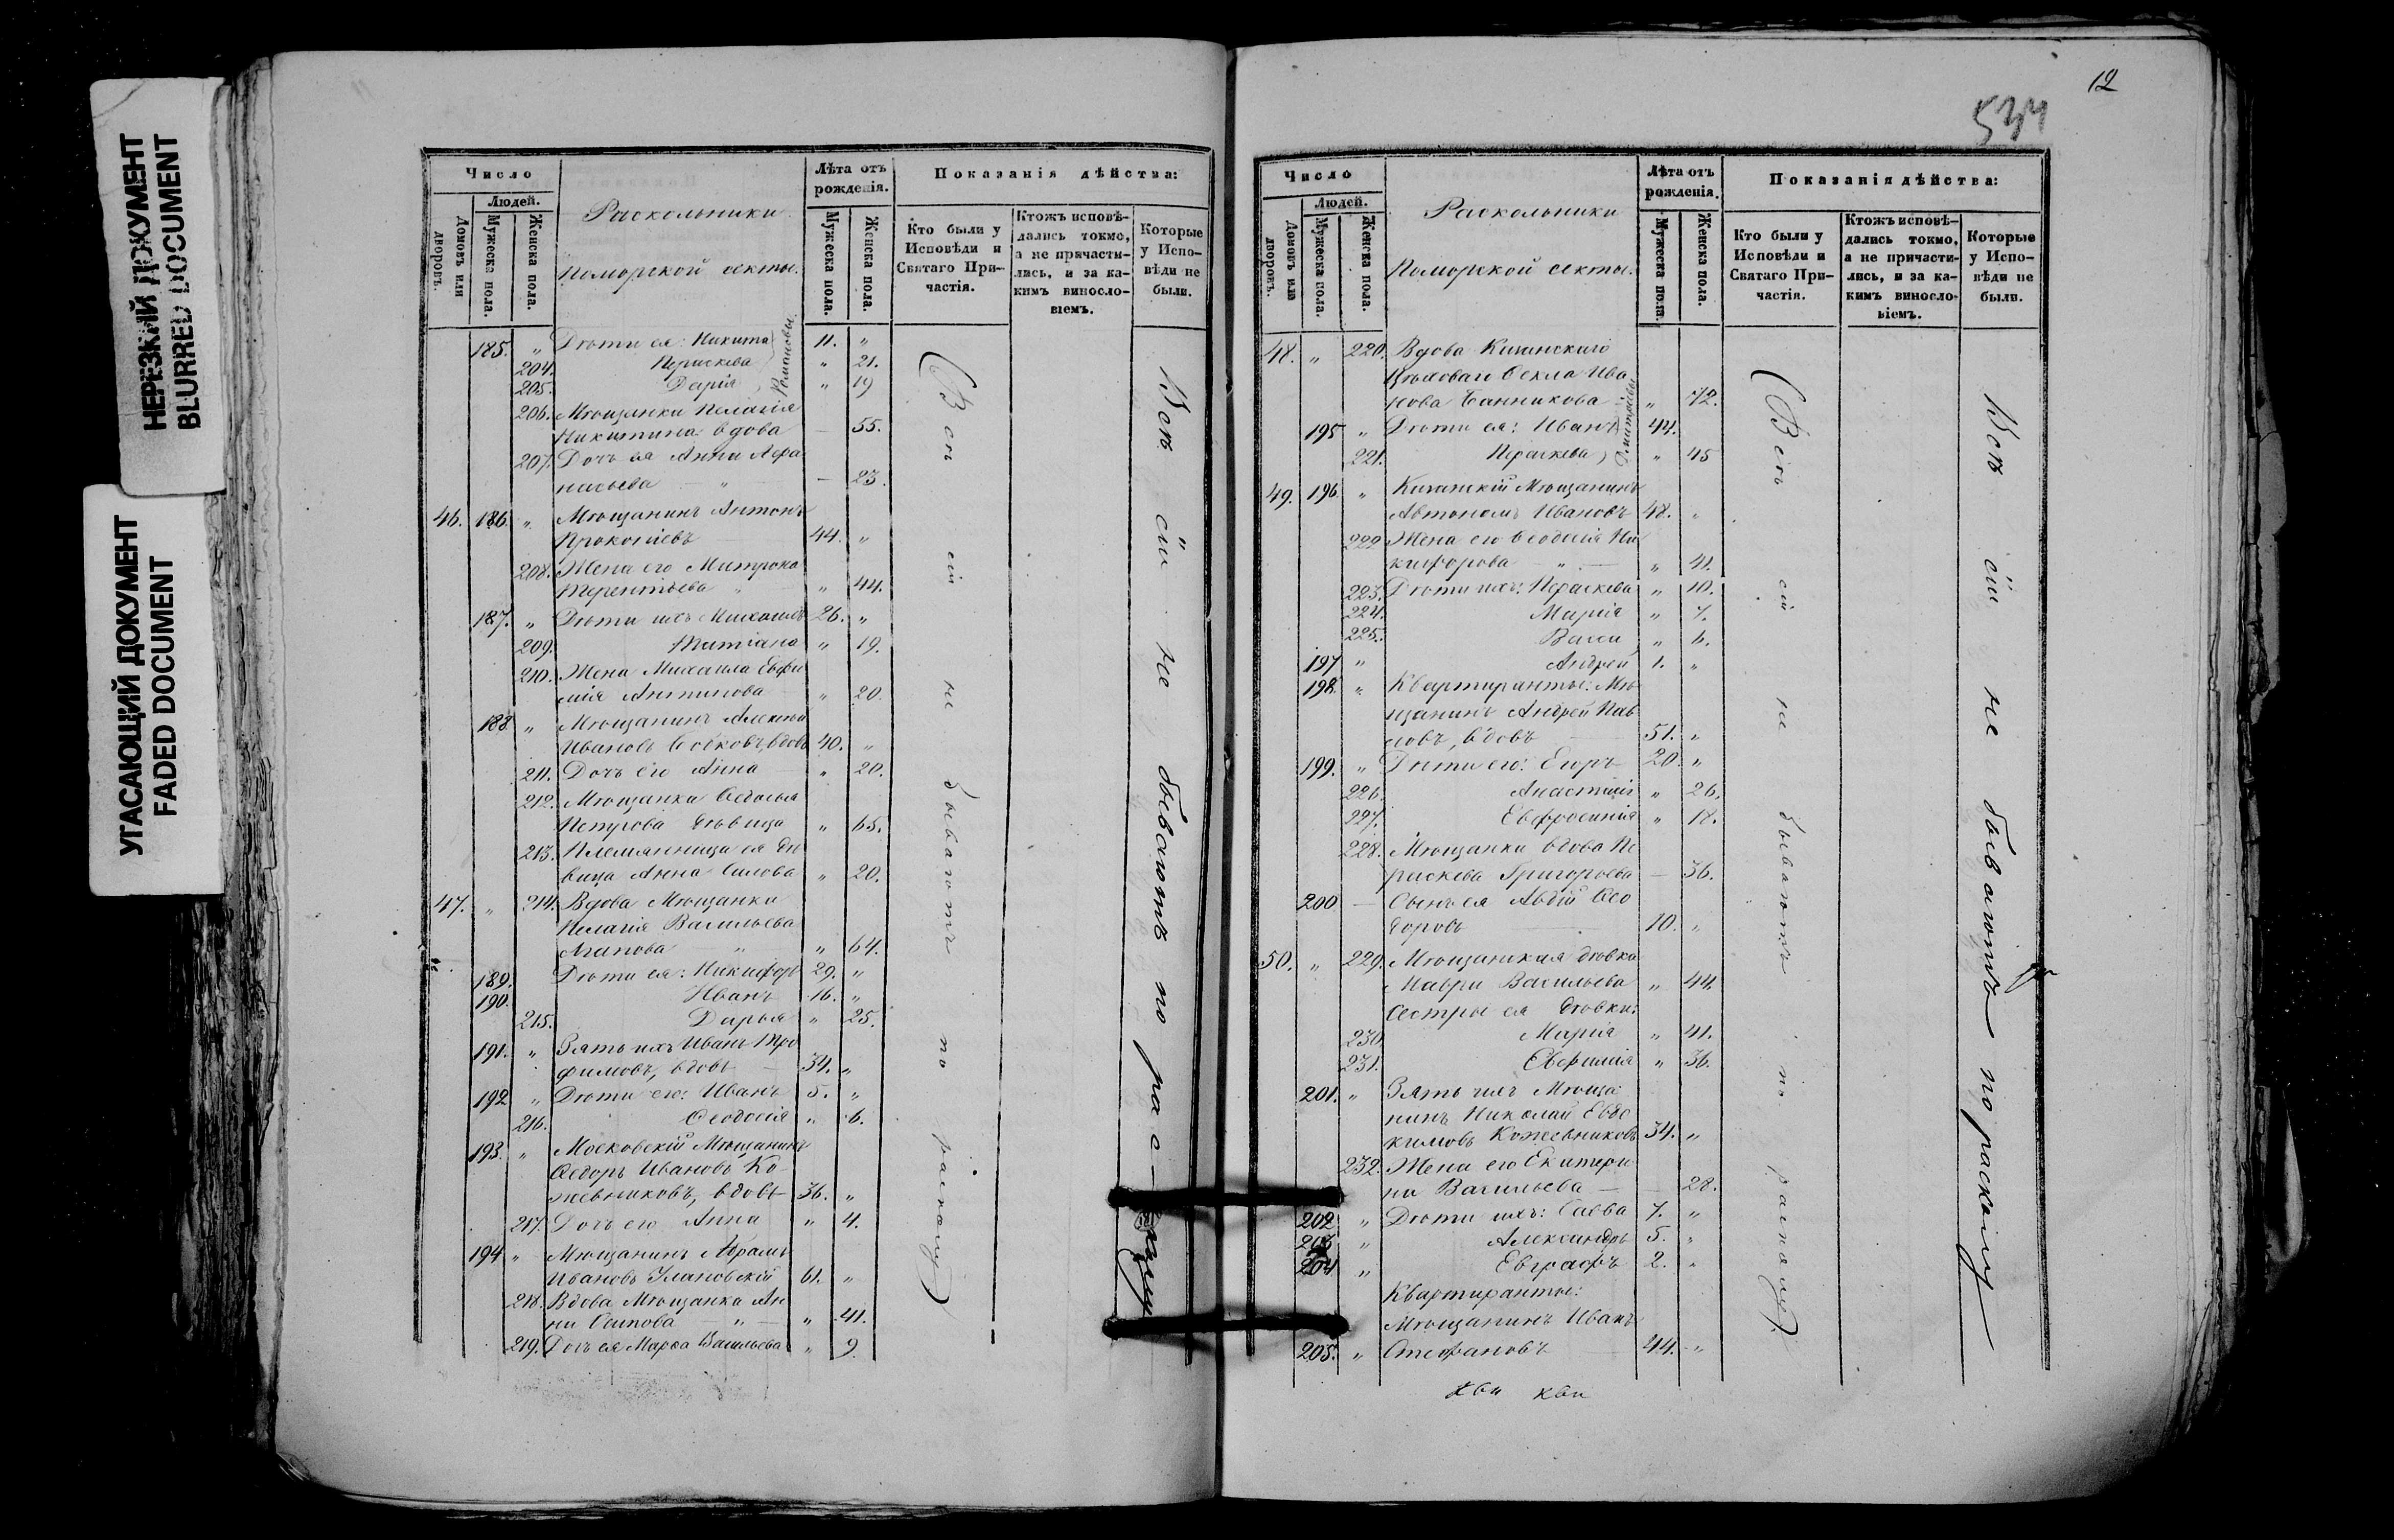 НЕРЕЗКИЙ ДОКУМЕНТ
BLURRED DOCUMENT
УГАСАЮЩИЙ ДОКУМЕНТ
FADED DOCUMENT
Число
Людей.
Домовъ или дворовъ.
Мужеска пола.
Женска пола.
Раскольники
Поморской секты.
Лѣта отъ рожденія.
Мужеска пола.
Женска пола.
Показанія дѣйства:
Кто были у Исповѣди и Святаго Причастія.
Ктожъ исповѣдались токмо, а не причастились, и за какимъ винословіемъ.
Которые у Исповѣди не были.
185. „ Дѣти ея: Никита 11. „
204. Параскева „ 21.
205. Дарія „ 19
Романовы.
206. Мѣщанка Пелагія
Никитина вдова — 55.
207. Дочь ея Анна Афа
насьева „ — 23.
46. 186. „ Мѣщанинъ Антонъ
Прокопіевъ 44. „
208. Жена его Митрона
Терентьева „ „ 44.
187. „ Дѣти ихъ Михаилъ 26. „
209. Татіана „ 19.
210. Жена Михаила Евфи
мія Антипова „ 20.
188. „ Мѣщанинъ Алексѣй
Ивановъ вдовъ 40. „
211. Дочь его Анна „ 20.
212. Мѣщанка Ѳедосья
Петрова дѣвица „ 65.
213. Племянница ея дѣ
вица Анна Силова „ 20.
47. „ 214. Вдова Мѣщанка
Пелагія Васильева
Агапова „ „ 64.
189. Дѣти ея: Никифоръ 29. „
190. Иванъ 16. „
215. Дарья „ 25.
191. „ Зять ихъ Иванъ Тро
фимовъ, вдовъ 34. „
192 „ Дѣти его: Иванъ 5. „
216. Ѳеодосія „ 6.
193. „ Московскій Мѣщанинъ
Ѳедоръ Ивановъ Ко
жевниковъ, вдовъ 36. „
217. Дочь его Анна „ 4.
194 „ Мѣщанинъ Абрамъ
Ивановъ Улановскій 61. „
218. Вдова Мѣщанка Ан
на Осипова „ „ 41.
219. Дочь ея Марѳа Васильева „ 9
(Всѣ сіи не бываютъ по расколу)
Всѣ сіи не бываютъ по расколу
12
534
Число
Людей.
Домовъ или дворовъ.
Мужеска пола.
Женска пола.
Раскольники
Поморской секты.
Лѣта отъ рожденія.
Мужеска пола.
Женска пола.
Показанія дѣйства:
Кто были у Исповѣди и Святаго Причастія.
Ктожъ исповѣдались токмо, а не причастились, и за какимъ винословіемъ.
Которые у Исповѣди не были.
48. „ 220. Вдова
Цѣховаго Ѳекла Ива
нова Банникова „ 72.
195 „ Дѣти ея: Иванъ 44.
221. Параскева „ 45
Дмитріевы
49. 196 „ Мѣщанинъ
Автономъ Ивановъ 48. „
222 Жена его Ѳеодосія Ни
кифорова „ „ 41.
223. Дѣти ихъ: Параскева „ 10.
224. Марія „ 7.
225. Васса „ 6.
197 „ Андрей 1. „
198. „ Квартиранты: Мѣ
щанинъ Андрей Пав
ловъ, вдовъ 51. „
199. „ Дѣти его: Егоръ 20 „
226. Анастасія „ 26.
227. Евфросинія „ 18.
228. Мѣщанка вдова Па
раскева Григорьева — 36.
200 — Сынъ ея Авдій Ѳео
доровъ 10. „
50. „ 229. Мѣщанская дѣвка
Мавра Васильева „ 44.
Сестры ея дѣвки:
230. Марія „ 41.
231. Евфимія „ 36.
201. „ Зять ихъ Мѣща
нинъ Николай Евдо
кимовъ Кожевниковъ 34. „
232. Жена его Екатери
на Васильева — 28.
202 „ Дѣти ихъ: Савва 7. „
203 „ Александръ 5. „
204 „ Евграфъ 2. „
Квартиранты:
Мѣщанинъ Иванъ
205. „ Стефановъ 44. „
(Всѣ сіи не бываютъ по расколу)
Всѣ сіи не бываютъ по расколу